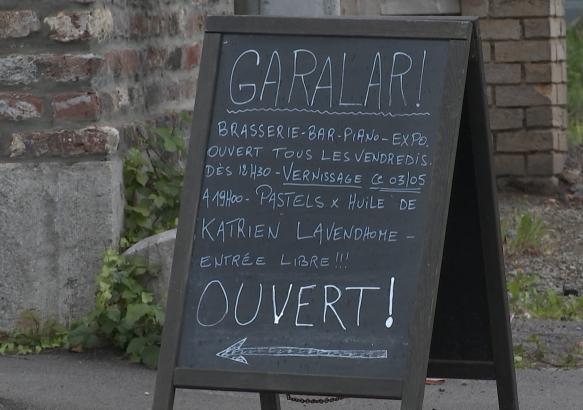 GARALAR!
BRASSERIE-BAR-PIANO-EXPO.
OUVERT TOUS LES VENDREDIS.
DÈS 12H30 - VERNISSAGE CE 03/05
A 19H00 - PASTELS x HUILE DE
KATRIEN LAVENDHOME -
ENTRÉE LIBRE!!!
OUVERT!